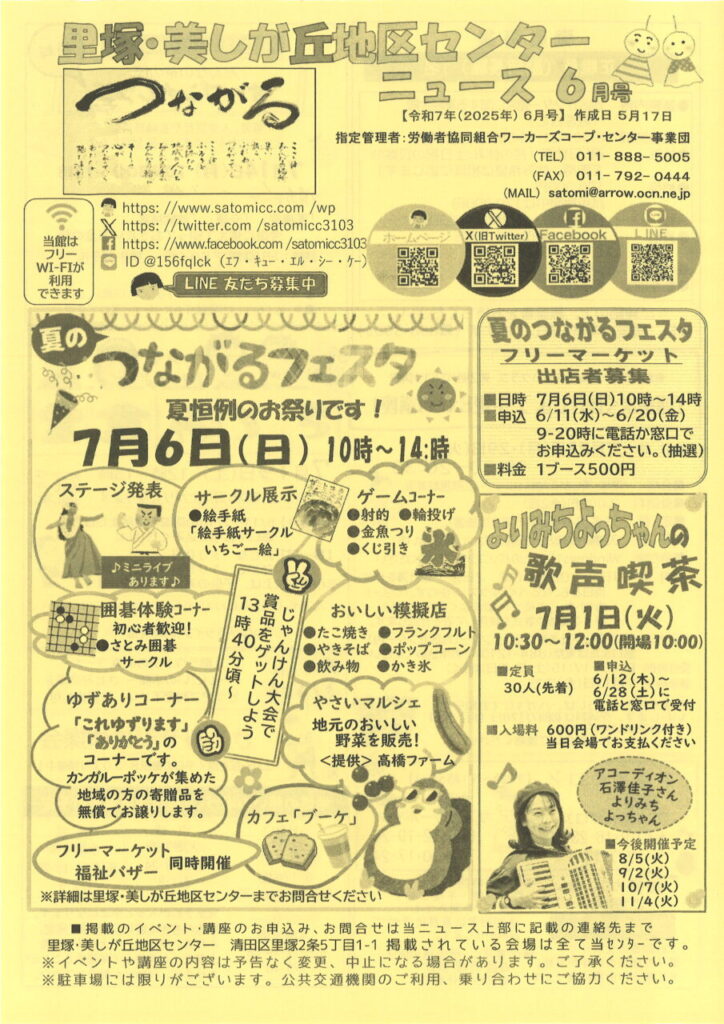 里塚・美しが丘地区センター
ニュース 6月号
つながる
【令和7年(2025年) 6月号】 作成日 5月17日
指定管理者:労働者協同組合ワーカーズコープ・センター事業団
(TEL) 011-888-5005
(FAX) 011-792-0444
(MAIL) satomi@arrow.ocn.ne.jp
当館は
フリー
WI-FIが
利用
できます
https: //www.satomicc.com /wp
https: //twitter.com /satomicc3103
https: //www.facebook.com /satomicc3103
ID @156fqlck (エフ・キュー・エル・シー・ケー)
LINE 友だち募集中
ホームページ
X(旧Twitter)
Facebook
LINE
夏の
つながるフェスタ
夏恒例のお祭りです!
7月6日(日) 10時~14時
ステージ発表
♪ミニライブ
あります♪
サークル展示
●絵手紙
「絵手紙サークル
いちご一絵」
ゲームコーナー
●射的 ●輪投げ
●金魚つり
●くじ引き
氷
囲碁体験コーナー
初心者歓迎!
●さとみ囲碁
サークル
じゃんけん大会で
賞品をゲットしよう
13時40分頃~
おいしい模擬店
●たこ焼き ●フランクフルト
●やきそば ●ポップコーン
●飲み物 ●かき氷
ゆずありコーナー
「これゆずります」
「ありがとう」の
コーナーです。
カンガルーポッケが集めた
地域の方の寄贈品を
無償でお譲りします。
やさいマルシェ
地元のおいしい
野菜を販売!
<提供> 高橋ファーム
カフェ「ブーケ」
フリーマーケット
福祉バザー
同時開催
※詳細は里塚・美しが丘地区センターまでお問合せください
夏のつながるフェスタ
フリーマーケット
出店者募集
■日時 7月6日(日)10時~14時
■申込 6/11(水)~6/20(金)
9-20時に電話か窓口で
お申込みください。(抽選)
■料金 1ブース500円
よりみちよっちゃんの
歌声喫茶
7月1日(火)
10:30~12:00(開場10:00)
■定員
30人(先着)
■申込
6/12(木)~
6/28(土)に
電話と窓口で受付
■入場料 600円(ワンドリンク付き)
当日会場でお支払ください
アコーディオン
石澤佳子さん
よりみち
よっちゃん
■今後開催予定
8/5(火)
9/2(火)
10/7(火)
11/4(火)
■掲載のイベント・講座のお申込み、お問合せは当ニュース上部に記載の連絡先まで
里塚・美しが丘地区センター 清田区里塚2条5丁目1-1 掲載されている会場は全て当センターです。
※イベントや講座の内容は予告なく変更、中止になる場合があります。ご了承ください。
※駐車場には限りがございます。公共交通機関のご利用、乗り合わせにご協力ください。